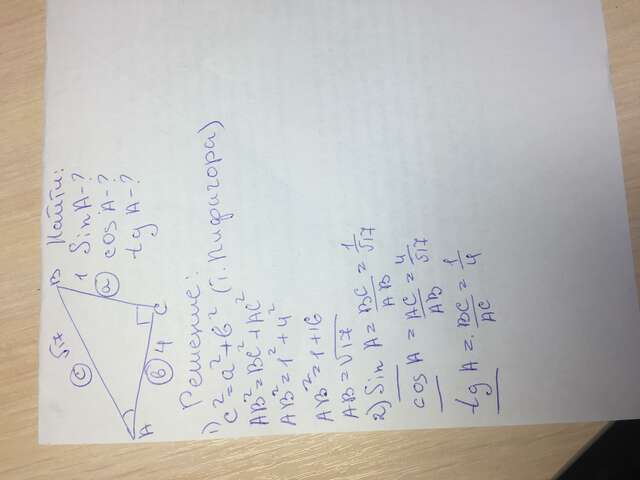 B
Найти:
√17
c
a
1
Sin A-?
cos A-?
tg A-?
A
b
4
C
Решение:
1) c²=a²+b² (т. Пифагора)
AB²=BC²+AC²
AB²=1²+4²
AB²=1+16
AB=√17
2) Sin A = BC/AB = 1/√17
cos A = AC/AB = 4/√17
tg A = BC/AC = 1/4